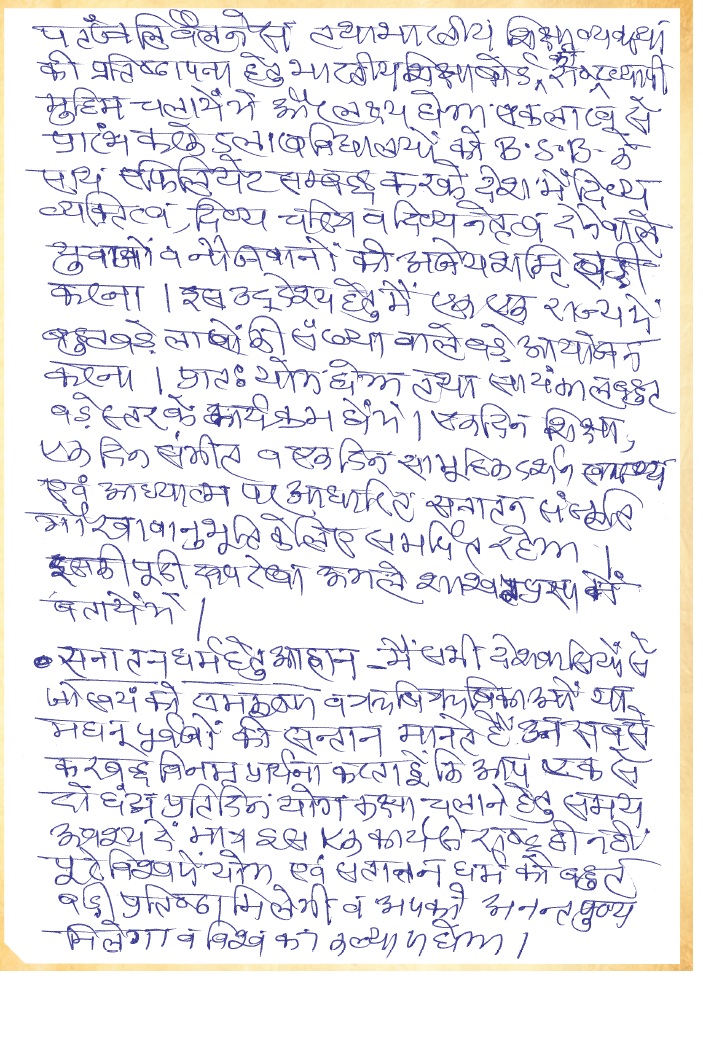 पतंजलि वैलनेस तथा भारतीय शिक्षा व्यवस्था
की प्रतिष्ठापना हेतु भारतीय शिक्षा बोर्ड की राष्ट्रव्यापी
मुहिम चलायेंगे और लक्ष्य होगा एक लाख से
प्रारंभ करके 5 लाख विद्यालयों को B.S.B. के
साथ एफिलियेट सम्बद्ध करके देश में दिव्य
व्यक्तित्व, दिव्य चरित्र व दिव्य नेतृत्व देने वाले
युवाओं व नौजवानों की अजेय शक्ति खड़ी
करना । इस उद्देश्य हेतु मैं एक एक राज्य में
बहुत बड़े लाखों की संख्या वाले बड़े आयोजन
करना । प्रातः योग होगा तथा सायंकाल बहुत
बड़े स्तर के कार्यक्रम होंगे । एक दिन शिक्षा,
एक दिन संगीत व एक दिन सामूहिक दर्शन स्वास्थ्य
एवं आध्यात्म पर आधारित सनातन संस्कृति
गौरवानुभूति के लिए समर्पित रहेगा ।
इसकी पूरी रूपरेखा अगले में
बतायेंगे ।
• सनातन धर्म हेतु आह्वान - मैं सभी देशवासियों से
जो स्वयं को रामकृष्ण व ऋषि ऋषिकाओं या
महान् पूर्वजों की सन्तान मानते हैं उन सबसे
करबद्ध विनम्र प्रार्थना करता हूँ कि आप एक से
दो घंटा प्रतिदिन योग कक्षा चलाने हेतु समय
अवश्य दें मात्र इस एक कार्य से राष्ट्र ही नहीं
पूरे विश्व में योग एवं सनातन धर्म को बहुत
बड़ी प्रतिष्ठा मिलेगी व आपको अनन्त पुण्य
मिलेगा व विश्व का कल्याण होगा ।